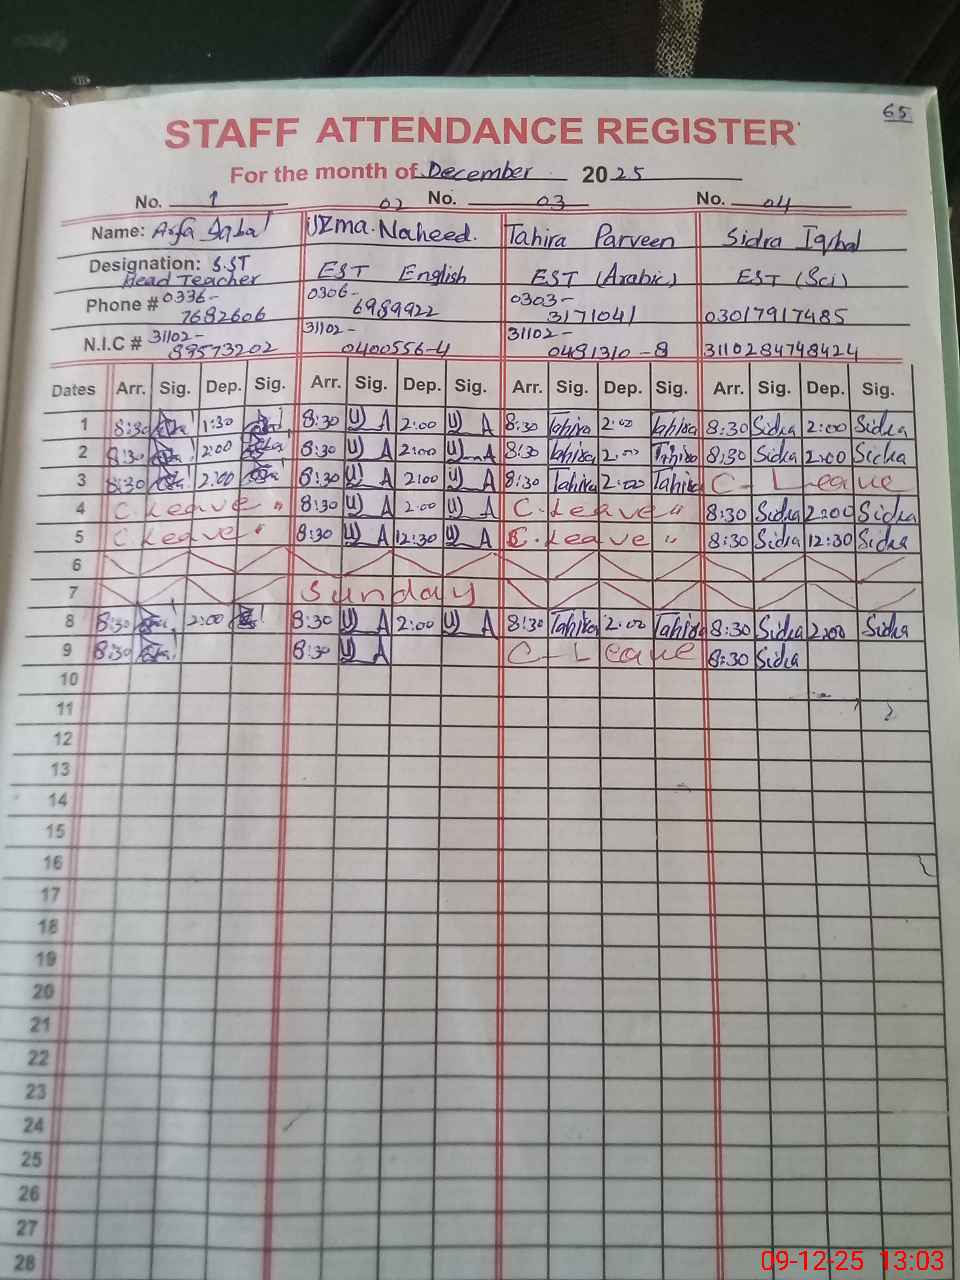 65
STAFF ATTENDANCE REGISTER
For the month of December 2025
No. 1 02 No. 03 No. 04
Name: Arfa Iqbal Uzma Naheed. Tahira Parveen Sidra Iqbal
Designation: SST Head Teacher EST English EST (Arabic) EST (Sci)
Phone # 0336-7682606 0306-6989922 0303-3171041 03017917485
N.I.C # 31102-89573202 31102-0400556-4 31102-0481310-8 3110284748424
Dates Arr. Sig. Dep. Sig. Arr. Sig. Dep. Sig. Arr. Sig. Dep. Sig. Arr. Sig. Dep. Sig.
1 8:30 1:30 8:30 U A 2:00 U A 8:30 Tahira 2:00 Tahira 8:30 Sidra 2:00 Sidra
2 8:30 2:00 8:30 U A 2:00 U A 8:30 Tahira 2:00 Tahira 8:30 Sidra 2:00 Sidra
3 8:30 2:00 8:30 U A 2:00 U A 8:30 Tahira 2:00 Tahira C-Leave
4 C.Leave " 8:30 U A 2:00 U A C.Leave " 8:30 Sidra 2:00 Sidra
5 C.Leave " 8:30 U A 12:30 U A C.Leave " 8:30 Sidra 12:30 Sidra
6
7 Sunday
8 8:30 2:00 8:30 U A 2:00 U A 8:30 Tahira 2:00 Tahira 8:30 Sidra 2:00 Sidra
9 8:30 8:30 U A C-Leave 8:30 Sidra
10
11
12
13
14
15
16
17
18
19
20
21
22
23
24
25
26
27
28
09-12-25 13:03